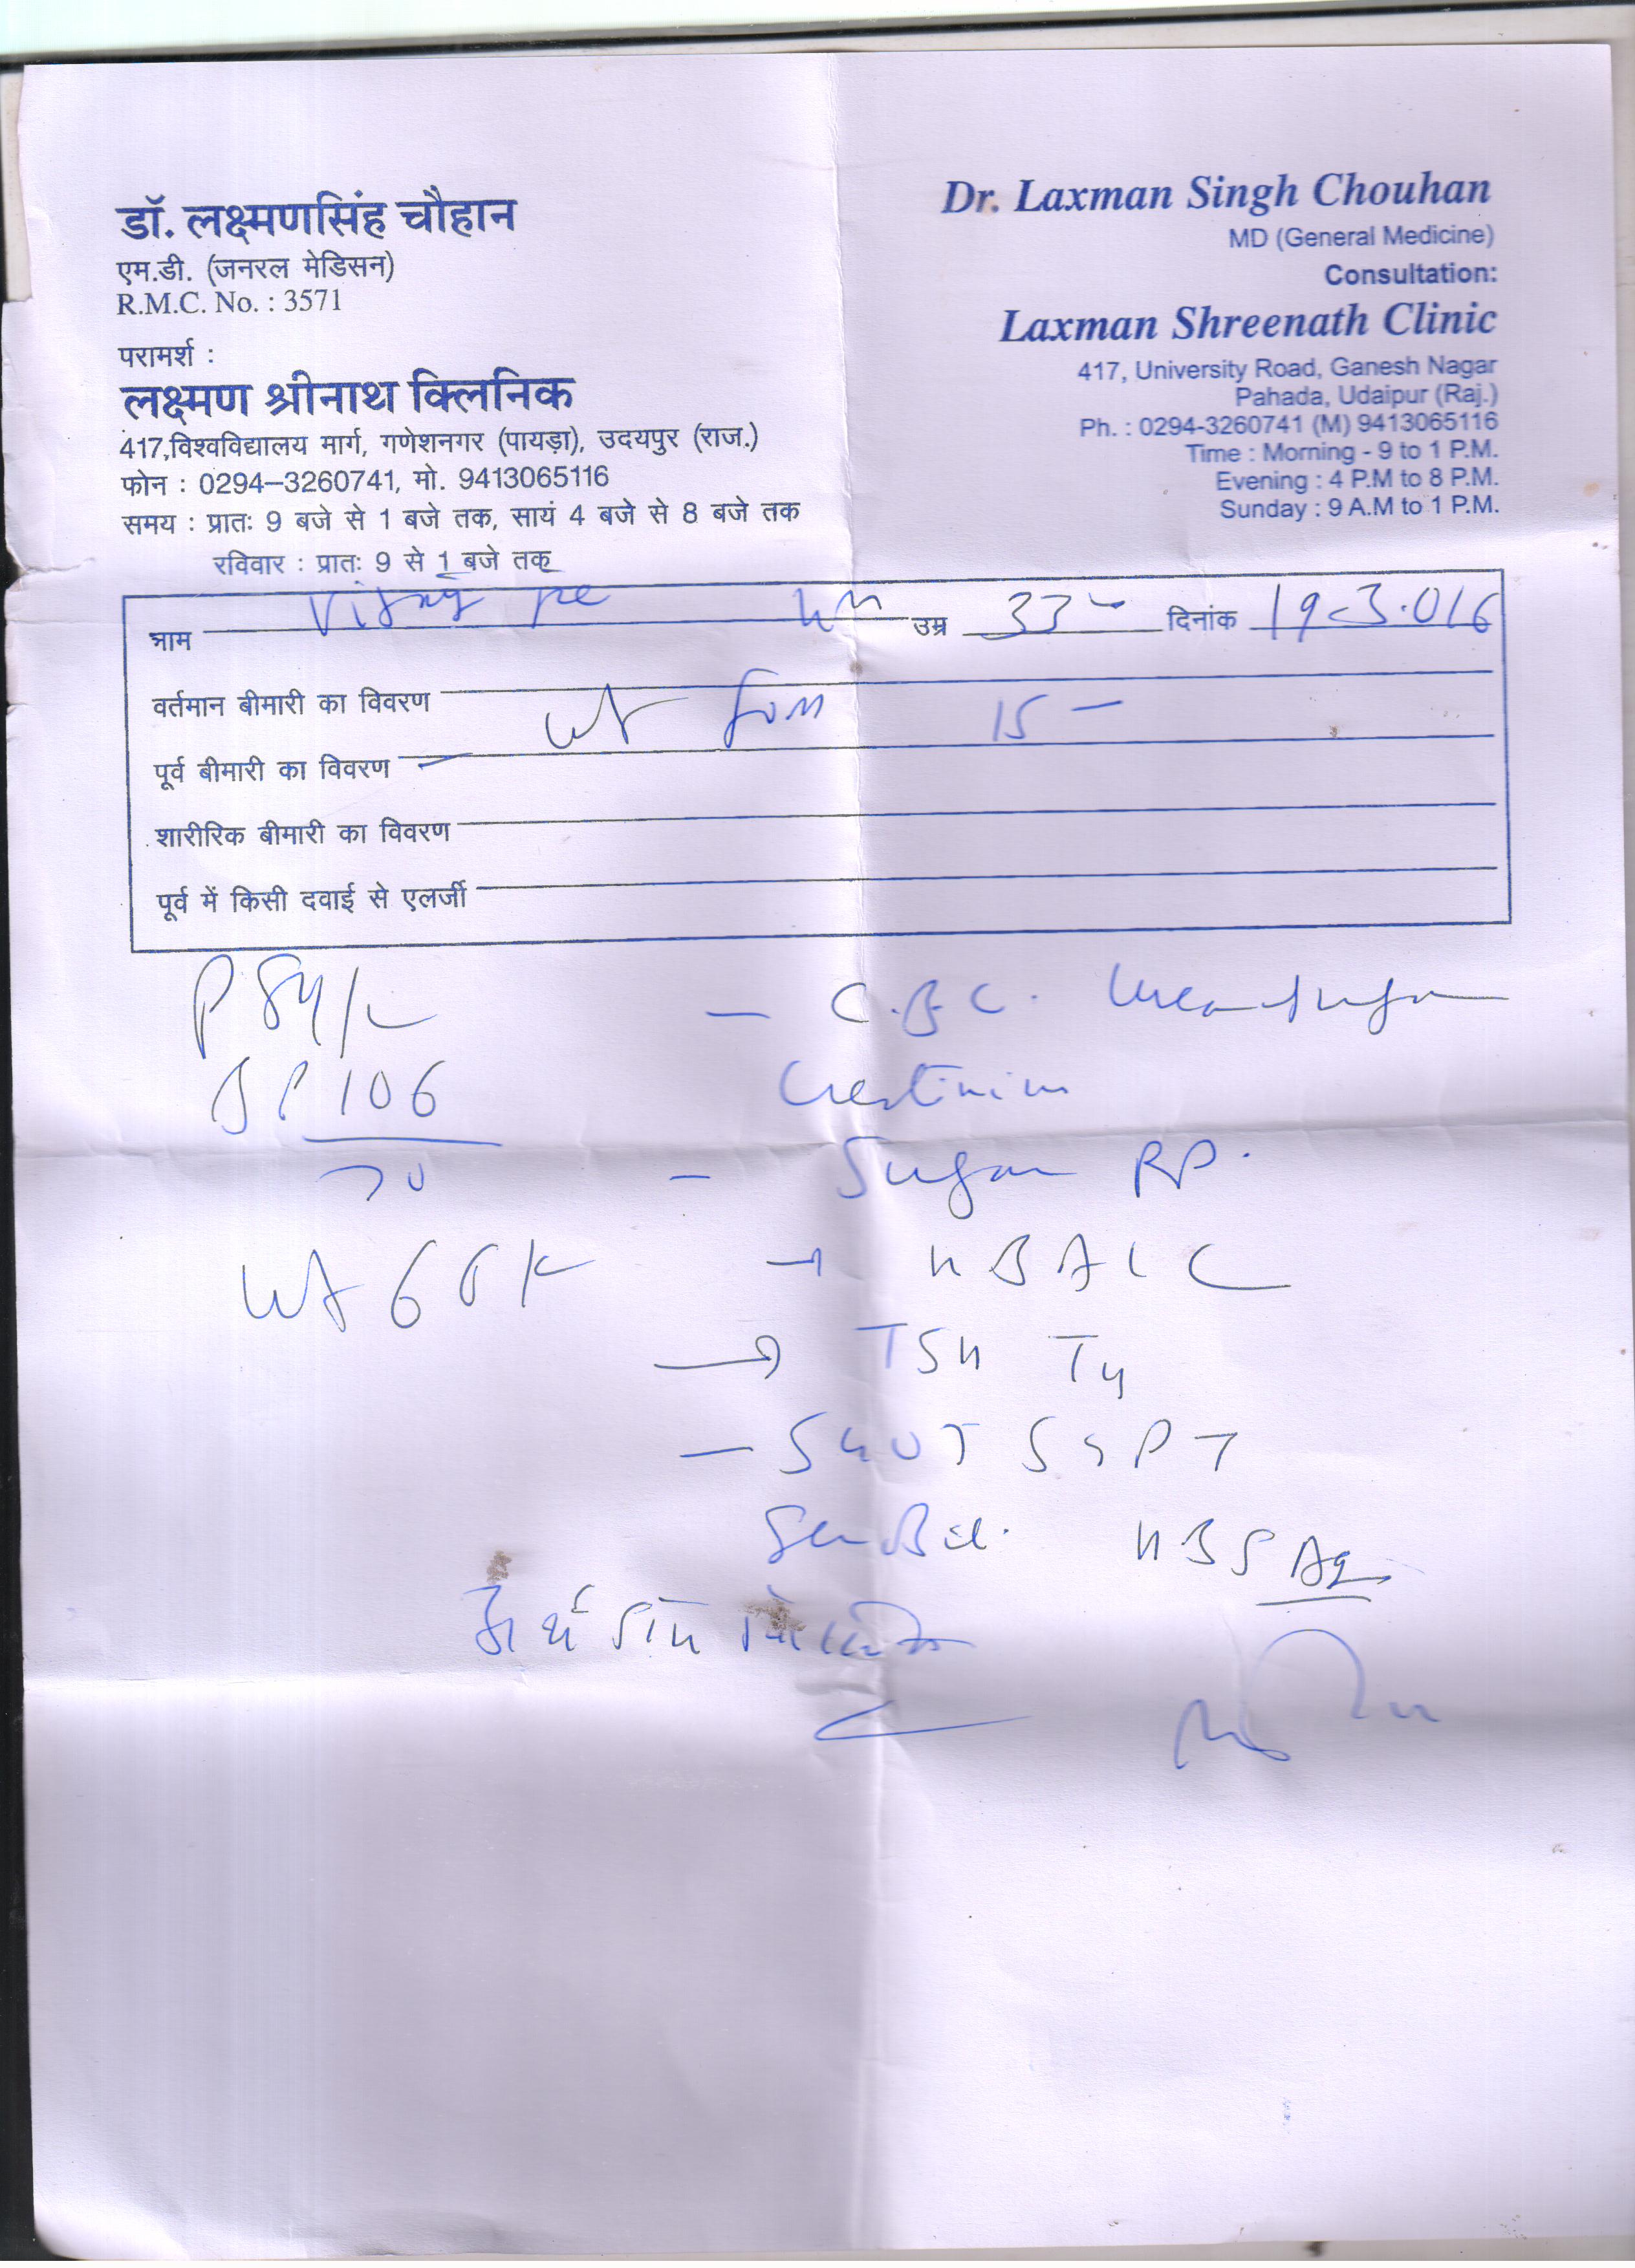 डॉ. लक्ष्मणसिंह चौहान
एम.डी. (जनरल मेडिसन)
R.M.C. No. : 3571
परामर्श :
लक्ष्मण श्रीनाथ क्लिनिक
417,विश्वविद्यालय मार्ग, गणेशनगर (पायड़ा), उदयपुर (राज.)
फोन : 0294–3260741, मो. 9413065116
समय : प्रातः 9 बजे से 1 बजे तक, सायं 4 बजे से 8 बजे तक
रविवार : प्रातः 9 से 1 बजे तक
Dr. Laxman Singh Chouhan
MD (General Medicine)
Consultation:
Laxman Shreenath Clinic
417, University Road, Ganesh Nagar
Pahada, Udaipur (Raj.)
Ph. : 0294-3260741 (M) 9413065116
Time : Morning - 9 to 1 P.M.
Evening : 4 P.M to 8 P.M.
Sunday : 9 A.M to 1 P.M.
नाम उम्र 33 दिनांक 19-3-016
वर्तमान बीमारी का विवरण
wt 15 –
पूर्व बीमारी का विवरण
शारीरिक बीमारी का विवरण
पूर्व में किसी दवाई से एलर्जी
P 84/
BP 106
70
– C.B.C.
– Sugar
Wt 66 K
→ HBA1C
→ TSH T4
– SGOT SGPT
HBSAg